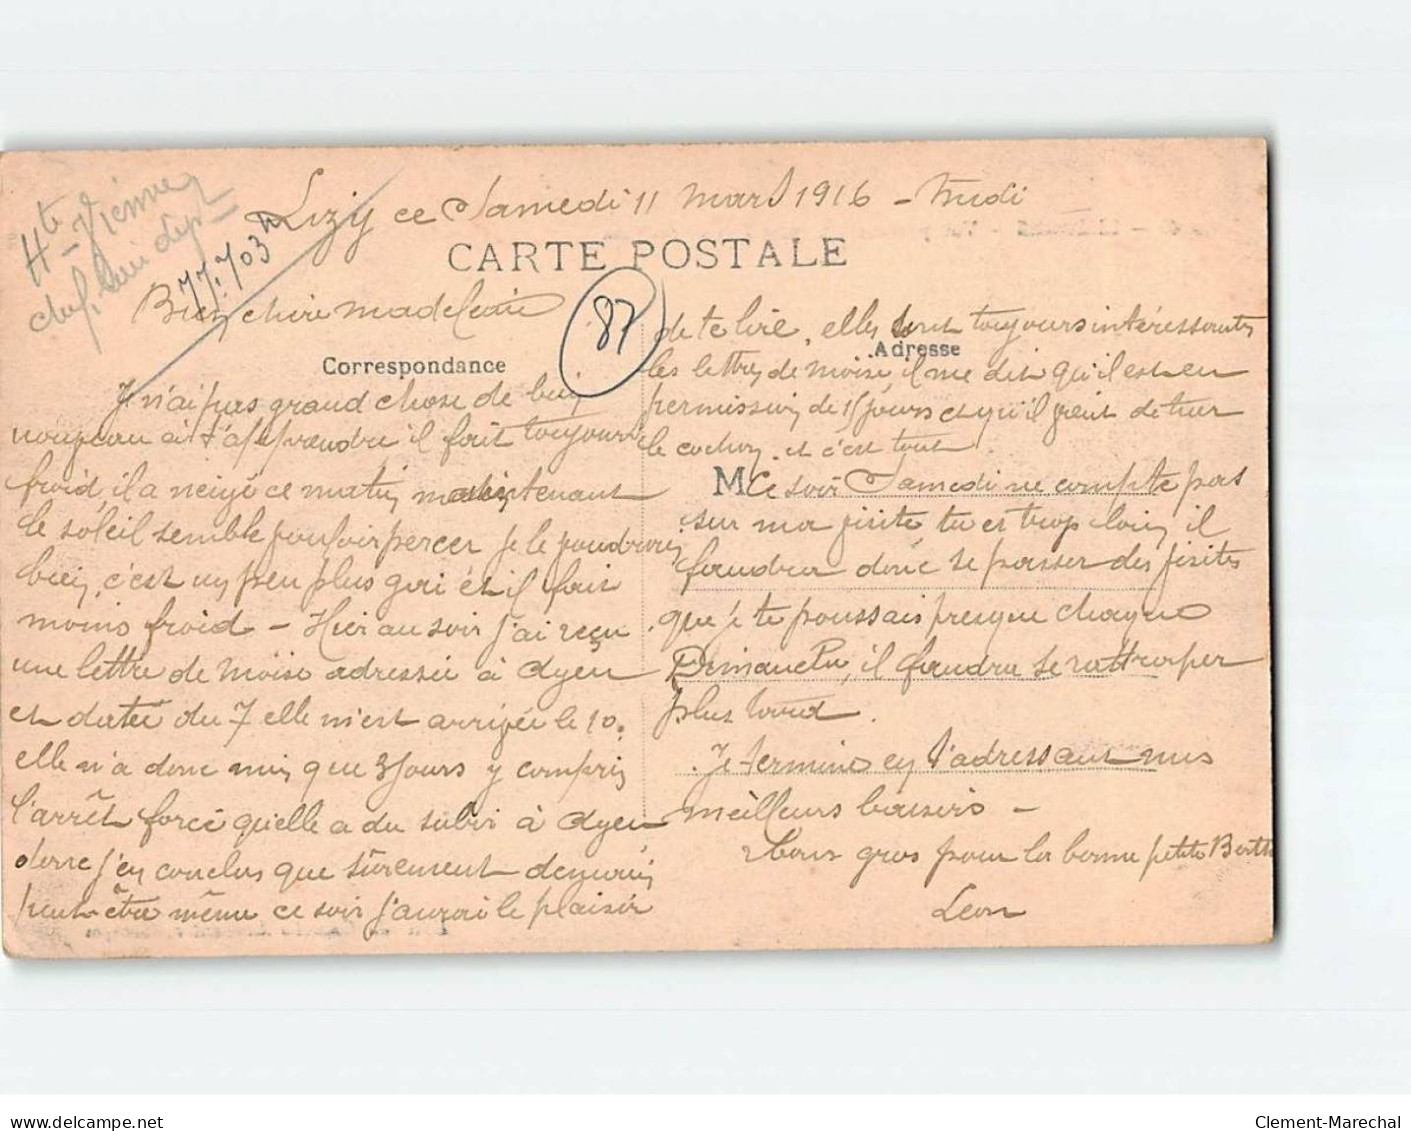 Hte Vienne
chef.
77.703
Lizy ce Samedi 11 Mars 1916 - Midi
CARTE POSTALE
87
Bien chère Madeleine
Correspondance
Je n'ai pas grand chose de bien
nouveau à t'apprendre il fait toujours
froid, il a neigé ce matin maintenant
le soleil semble vouloir percer je le voudrais
bien, c'est un peu plus gai et il fait
moins froid - Hier au soir j'ai reçu
une lettre de Moïse adressée à Ayen
et datée du 7 elle m'est arrivée le 10.
elle n'a donc mis que 3 jours y compris
l'arrêt forcé qu'elle a du subir à Ayen
donc j'en conclus que sûrement demain
peut-être même ce soir j'aurai le plaisir
de te lire, elles sont toujours intéressantes
Adresse
les lettres de Moïse, il me dit qu'il est en
permission de 15 jours et qu'il vient de tuer
le cochon et c'est tout.
M
Ce soir Samedi ne compte pas
sur ma visite tu es trop loin, il
faudra donc se passer des visites
que je te poussais presque chaque
Dimanche, il faudra se rattraper
plus tard.
Je termine en t'adressant mes
meilleurs baisers -
gros pour la bonne petite Berthe
Leon
delcampe.net
Clement-Marechal